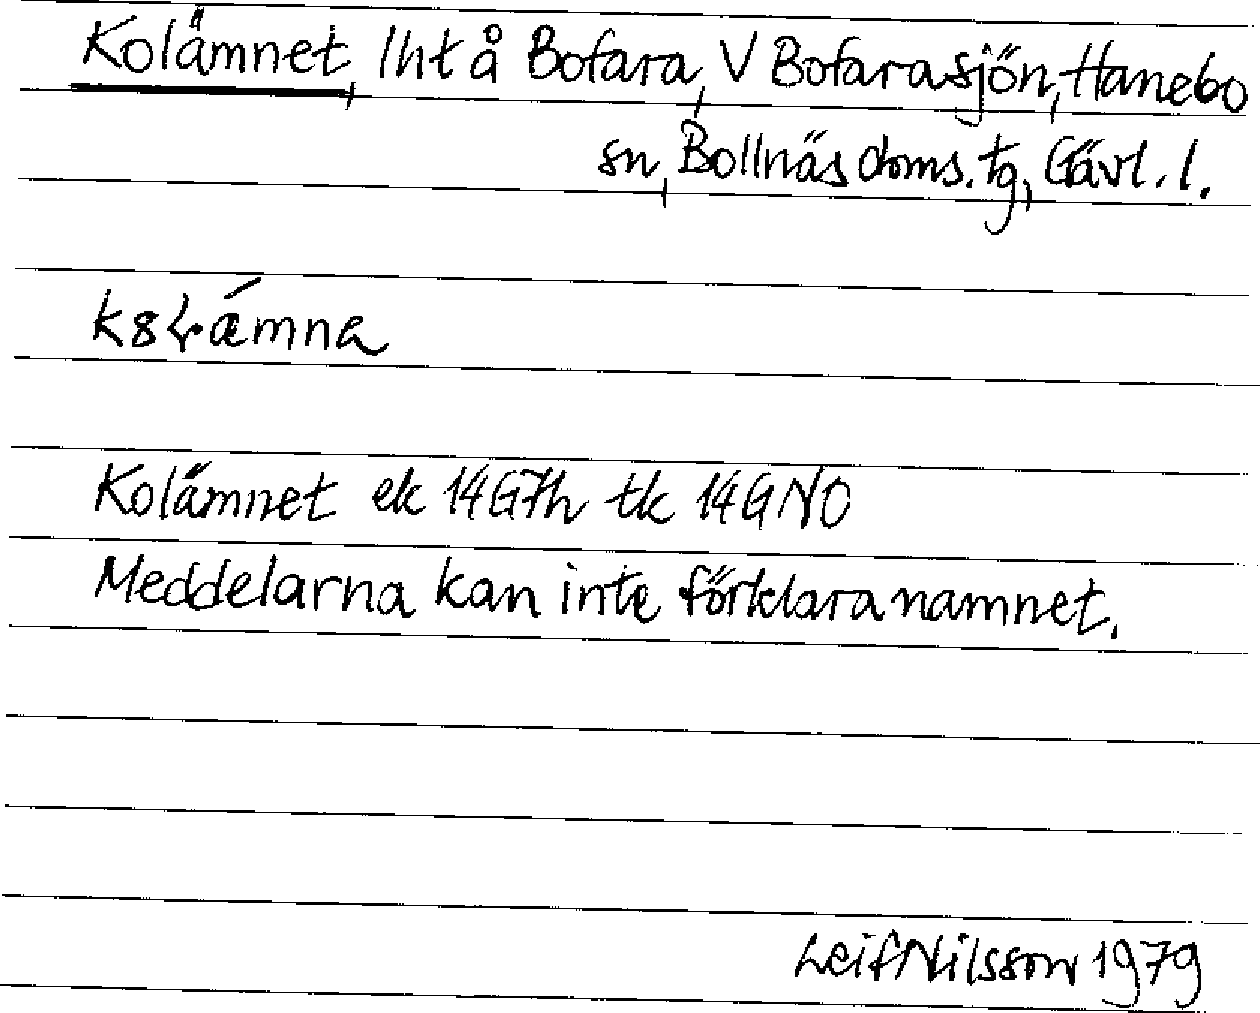 Kolämnet, lht å Bofara, V Bofarasjön, Hanebo
sn, Bollnäs doms. tg, Gävl. l.
Kolämnet ek 14G7h tk 14GNO
Meddelarna kan inte förklara namnet.
Leif Nilsson 1979